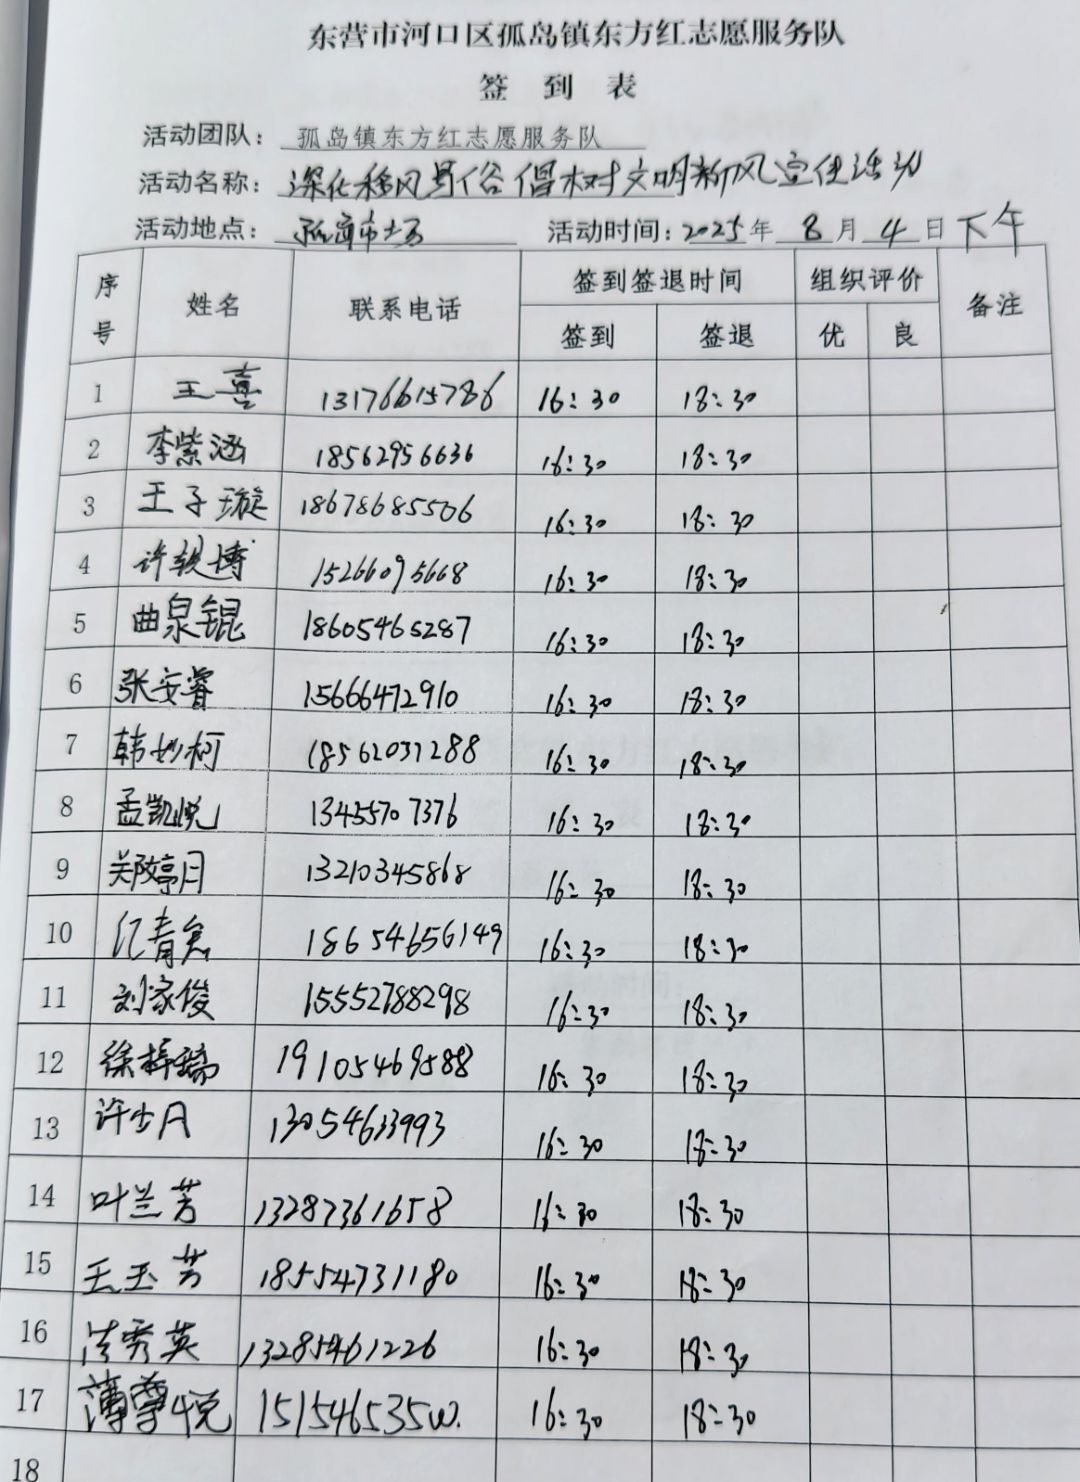 东营市河口区孤岛镇东方红志愿服务队
签 到 表
活动团队：孤岛镇东方红志愿服务队
活动名称：深化移风易俗 倡树文明新风宣传活动
活动地点：孤岛市场 活动时间：2025年 8月 4日 下午
序号 姓名 联系电话 签到签退时间 组织评价 备注
签到 签退 优 良
1 王喜 13176615786 16:30 18:30
2 李紫涵 18562956636 16:30 18:30
3 王子璇 18678685506 16:30 18:30
4 许轶博 15266095668 16:30 18:30
5 曲泉锟 18605465287 16:30 18:30
6 张安睿 15666472910 16:30 18:30
7 韩妙柯 18562031288 16:30 18:30
8 孟凯悦 13455707376 16:30 18:30
9 郑婷月 13210345868 16:30 18:30
10 18654656149 16:30 18:30
11 刘家俊 15552788298 16:30 18:30
12 徐梓瑞 19105469588 16:30 18:30
13 13054633993 16:30 18:30
14 叶兰芳 13287361658 16:30 18:30
15 王玉芳 18554731180 16:30 18:30
16 秀英 13285461226 16:30 18:30
17 悦 16:30 18:30
18